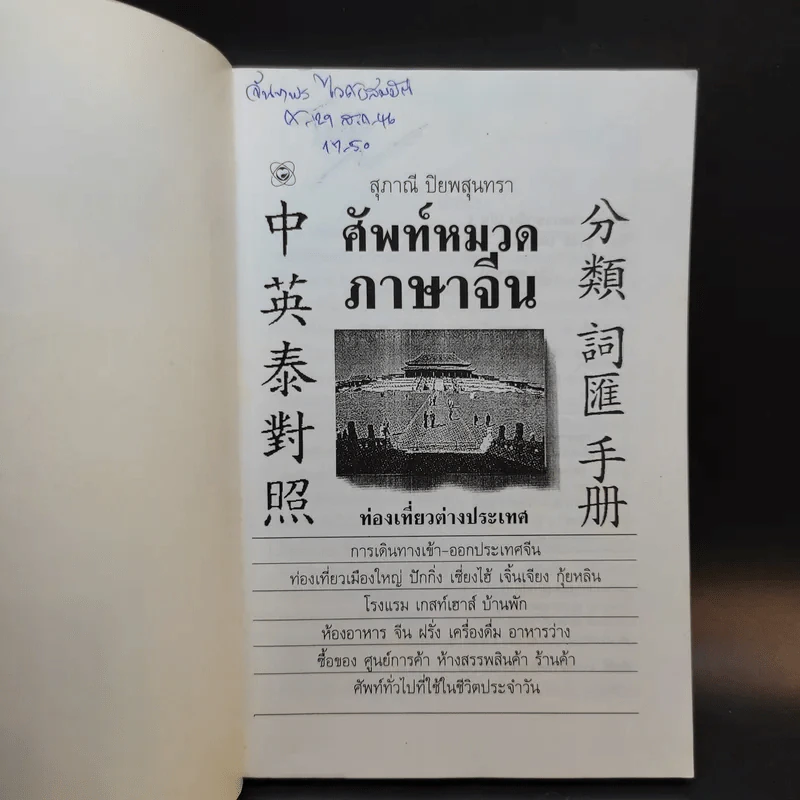 17.50
สุภาณี ปิยพสุนทรา
ศัพท์หมวด
ภาษาจีน
中英泰對照
分類詞匯手册
ท่องเที่ยวต่างประเทศ
การเดินทางเข้า-ออกประเทศจีน
ท่องเที่ยวเมืองใหญ่ ปักกิ่ง เซี่ยงไฮ้ เจิ้นเจียง กุ้ยหลิน
โรงแรม เกสท์เฮาส์ บ้านพัก
ห้องอาหาร จีน ฝรั่ง เครื่องดื่ม อาหารว่าง
ซื้อของ ศูนย์การค้า ห้างสรรพสินค้า ร้านค้า
ศัพท์ทั่วไปที่ใช้ในชีวิตประจำวัน